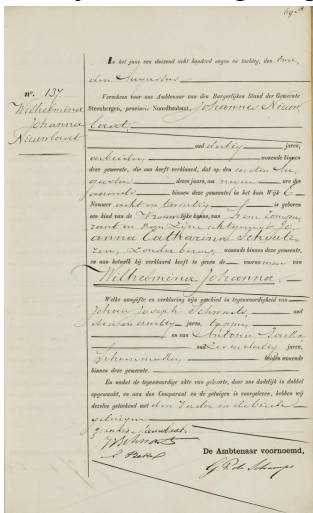 No. 137
Wilhelmina
Johanna
Nieuwlaat
In het jaar een duizend acht honderd negen en tachtig, den twee
den Augustus
Verscheen voor ons Ambtenaar van den Burgerlijken Stand der Gemeente
Steenbergen, provincie Noordbrabant, Johannes Nieuw
laat
oud dertig jaren,
arbeider wonende binnen
deze gemeente, die aan ons heeft verklaard, dat op den eersten Au
gustus dezes jaars, om negen ure des
binnen deze gemeente in het huis Wijk
Nummer acht en twintig is geboren
een kind van de Vrouwelijke kunne, van hem Compa
rant en van zijne echtgenoote Jo
anna Catharina
zonder beroep wonende binnen deze gemeente,
en aan hetwelk hij verklaard heeft te geven de voornamen van
Wilhelmina Johanna.
Welke aangifte en verklaring zijn geschied in tegenwoordigheid van
Johan Joseph
oud jaren,
en van Antonie
oud jaren,
Schoenmaker beiden wonende
binnen deze gemeente.
En nadat de tegenwoordige akte van geboorte, door ons dadelijk in dubbel
opgemaakt, en aan den Comparant en de getuigen is voorgelezen, hebben wij
dezelve geteekend met den Vader en de beide
getuigen
De Ambtenaar voornoemd,